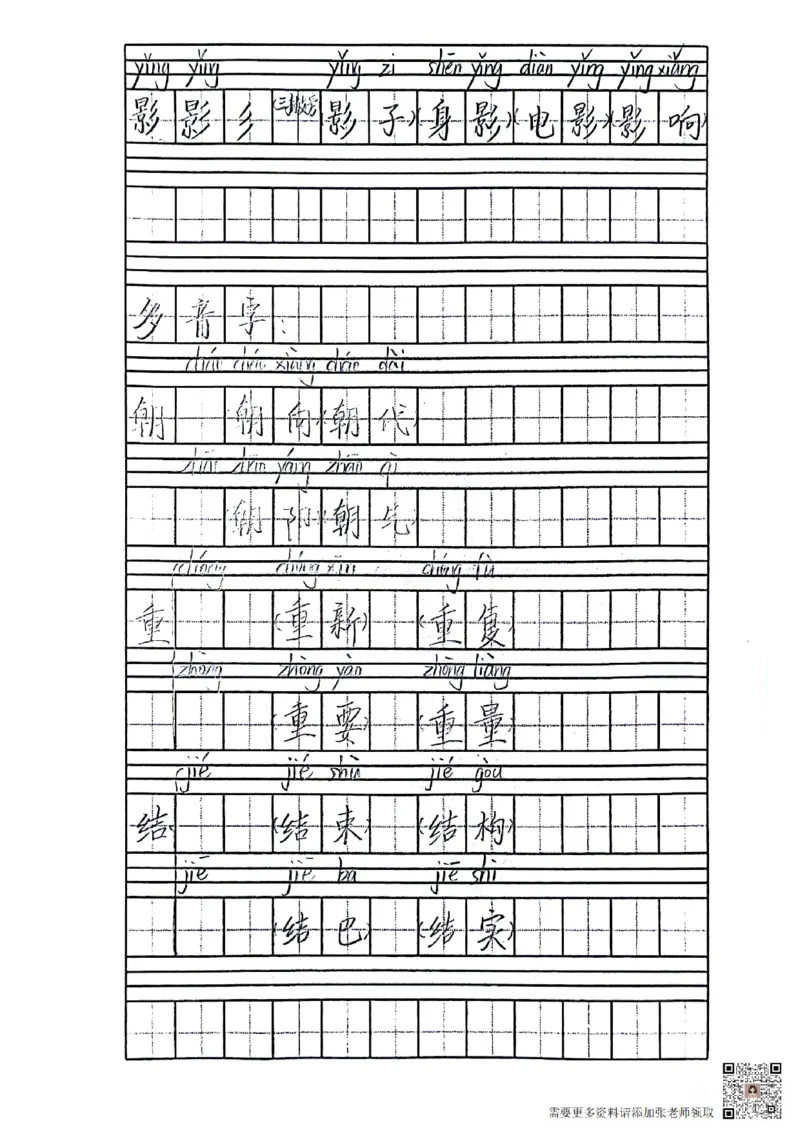 yǐng yǐng yǐng zi shēn yǐng diàn yǐng yǐng xiǎng
影 影 彡 (三撇旁) 影子 (身影) (电影) (影响)
多音字:
cháo cháo xiàng cháo dài
朝 朝向 (朝代
zhāo zhāo yáng zhāo qì
朝阳 (朝气
chóng chóng xīn chóng fù
重 (重新) (重复)
zhòng zhòng yào zhòng liàng
(重要) (重量)
jié jié shù jié gòu
结 (结束) (结构)
jiē jiē ba jiē shi
(结巴) (结实)
需要更多资料请添加张老师领取